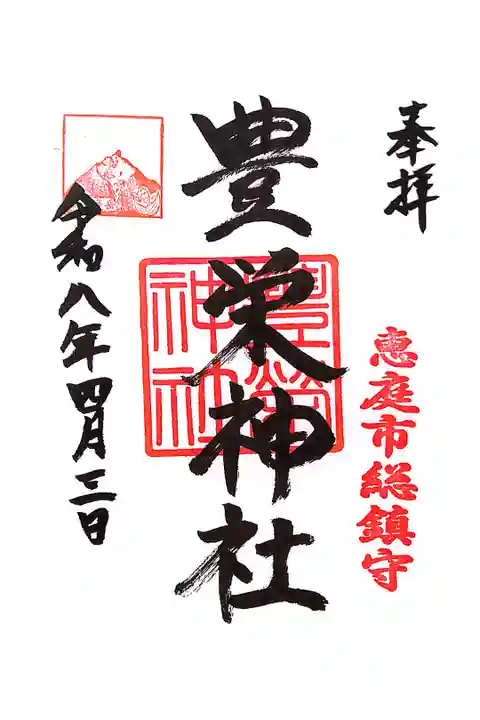 奉拝
恵庭市総鎮守
豊栄神社
豊榮
神社
令和八年四月三日